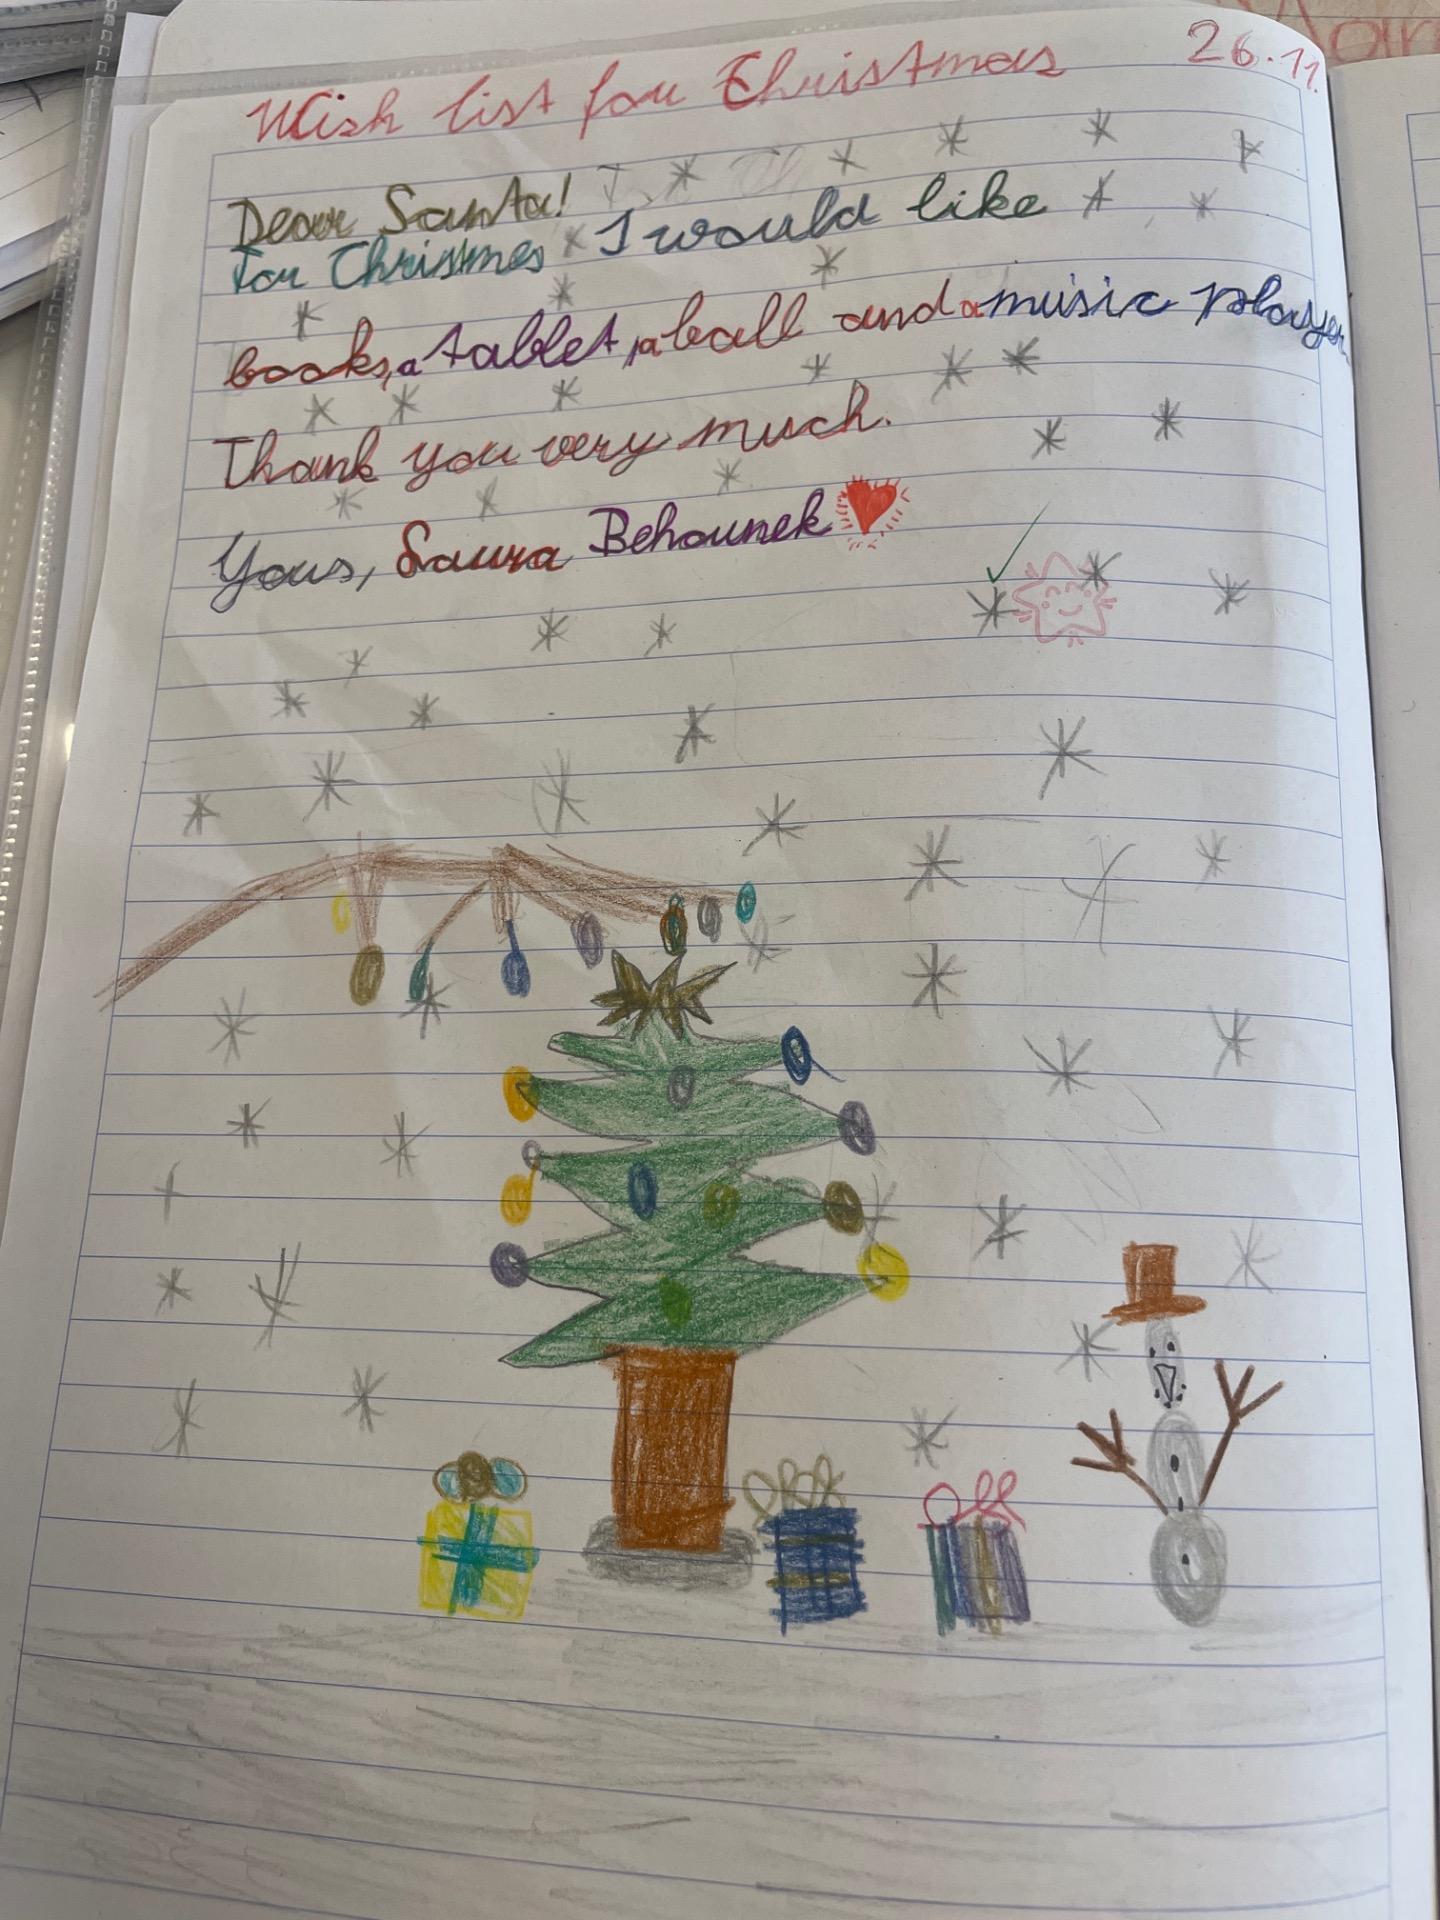 Wish list for Christmas
26.11.
Dear Santa!
For Christmes I would like
books, a tablet, a ball and a music player.
Thank you very much.
Yous, Laura Behounek